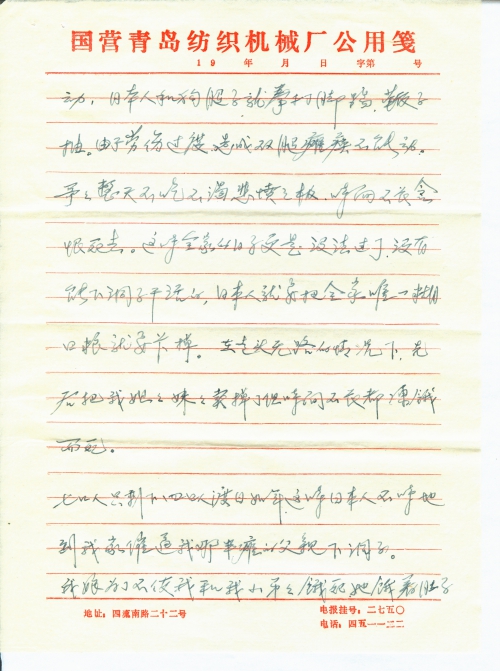 国营青岛纺织机械厂公用笺
19 年 月 日 字第 号
动，日本人和狗腿子就拳打脚踢，鞭子
抽。由于劳伤过度，造成双腿瘫痪不能动。
整天不吃不喝悲愤之极，时间不长含
恨死去。这时全家的日子更是没法过了，没有
能下洞子干活的，日本人就要把全家唯一的
口粮就要卡掉。在走头无路的情况下，先
后把我姐姐妹妹卖掉了但时间不长都冻饿
而死。
七口人只剩下四口人度日如年，这时日本人不时地
到我家催逼我那半瘫的父亲下洞子。
我娘为了不使我和我小弟弟饿死她饿着肚子
地址：四流南路二十二号
电报挂号：二七五〇
电话：四五一一二二